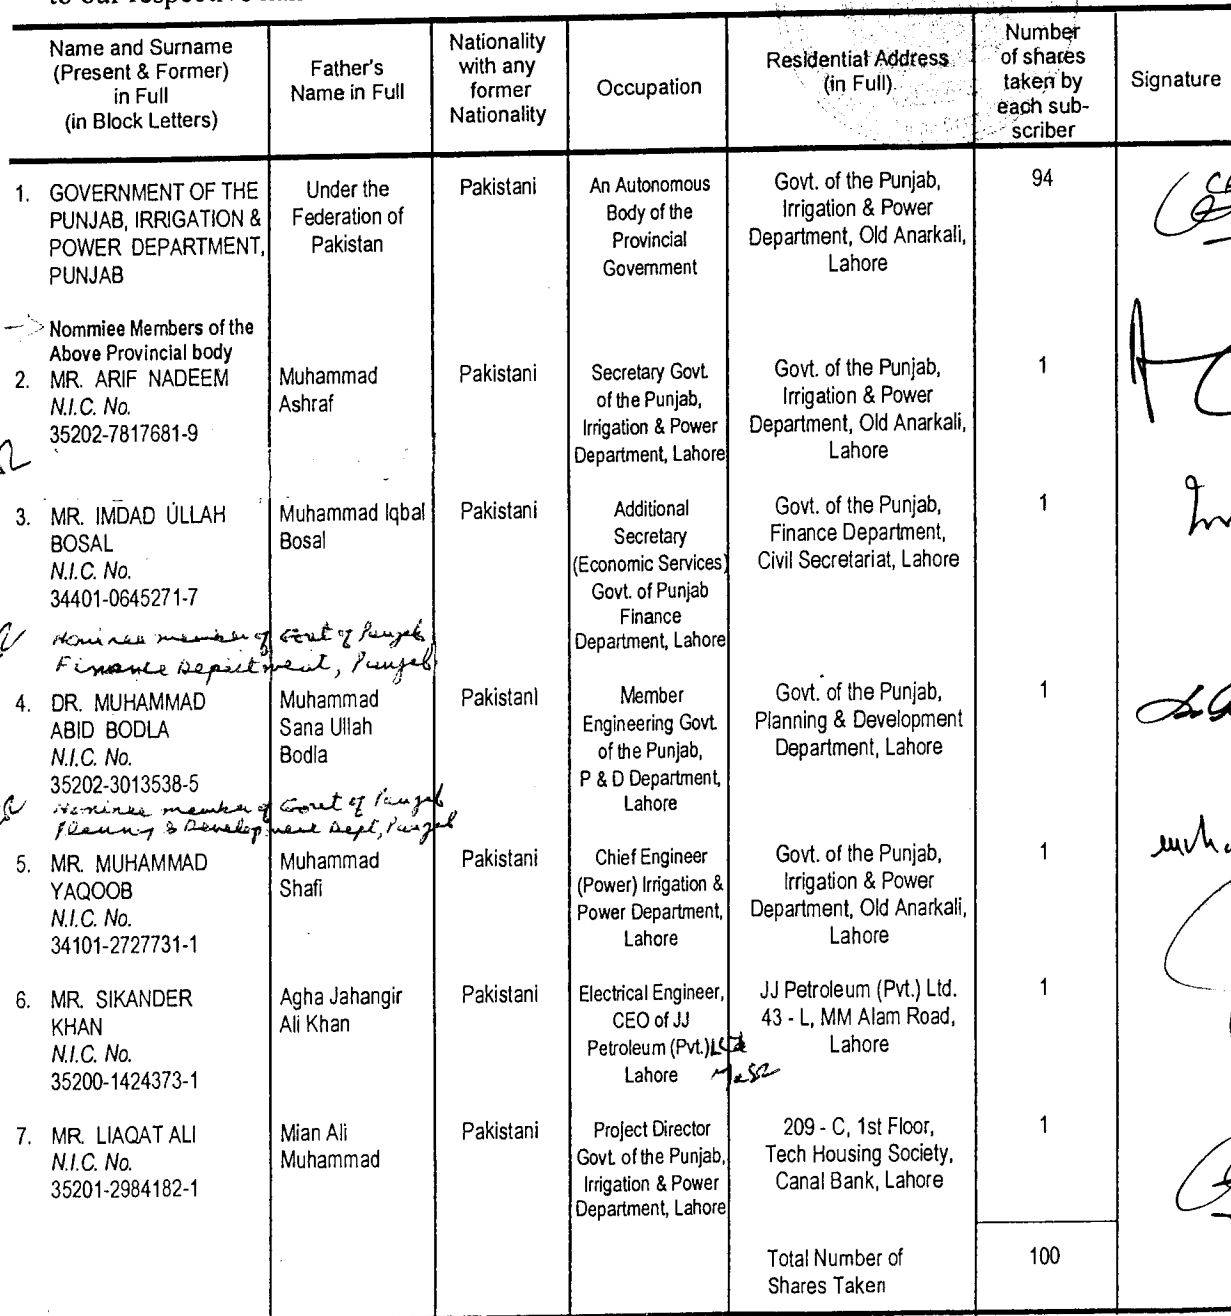 Name and Surname
(Present & Former)
in Full
(in Block Letters)
Father's
Name in Full
Nationality
with any
former
Nationality
Occupation
Residential Address
(in Full)
Number
of shares
taken by
each sub-
scriber
Signature
1. GOVERNMENT OF THE
PUNJAB, IRRIGATION &
POWER DEPARTMENT,
PUNJAB
Under the
Federation of
Pakistan
Pakistani
An Autonomous
Body of the
Provincial
Government
Govt. of the Punjab,
Irrigation & Power
Department, Old Anarkali,
Lahore
94
Nommiee Members of the
Above Provincial body
2. MR. ARIF NADEEM
N.I.C. No.
35202-7817681-9
Muhammad
Ashraf
Pakistani
Secretary Govt.
of the Punjab,
Irrigation & Power
Department, Lahore
Govt. of the Punjab,
Irrigation & Power
Department, Old Anarkali,
Lahore
1
3. MR. IMDAD ULLAH
BOSAL
N.I.C. No.
34401-0645271-7
Muhammad Iqbal
Bosal
Pakistani
Additional
Secretary
(Economic Services)
Govt. of Punjab
Finance
Department, Lahore
Govt. of the Punjab,
Finance Department,
Civil Secretariat, Lahore
1
Nominee member of Govt of Punjab
Finance Department, Punjab
4. DR. MUHAMMAD
ABID BODLA
N.I.C. No.
35202-3013538-5
Muhammad
Sana Ullah
Bodla
Pakistani
Member
Engineering Govt.
of the Punjab,
P & D Department,
Lahore
Govt. of the Punjab,
Planning & Development
Department, Lahore
1
Nominee member of Govt of Punjab
Planning & Development Dept, Punjab
5. MR. MUHAMMAD
YAQOOB
N.I.C. No.
34101-2727731-1
Muhammad
Shafi
Pakistani
Chief Engineer
(Power) Irrigation &
Power Department,
Lahore
Govt. of the Punjab,
Irrigation & Power
Department, Old Anarkali,
Lahore
1
6. MR. SIKANDER
KHAN
N.I.C. No.
35200-1424373-1
Agha Jahangir
Ali Khan
Pakistani
Electrical Engineer,
CEO of JJ
Petroleum (Pvt.) Ltd
Lahore
JJ Petroleum (Pvt.) Ltd.
43 - L, MM Alam Road,
Lahore
1
7. MR. LIAQAT ALI
N.I.C. No.
35201-2984182-1
Mian Ali
Muhammad
Pakistani
Project Director
Govt. of the Punjab,
Irrigation & Power
Department, Lahore
209 - C, 1st Floor,
Tech Housing Society,
Canal Bank, Lahore
1
Total Number of
Shares Taken
100